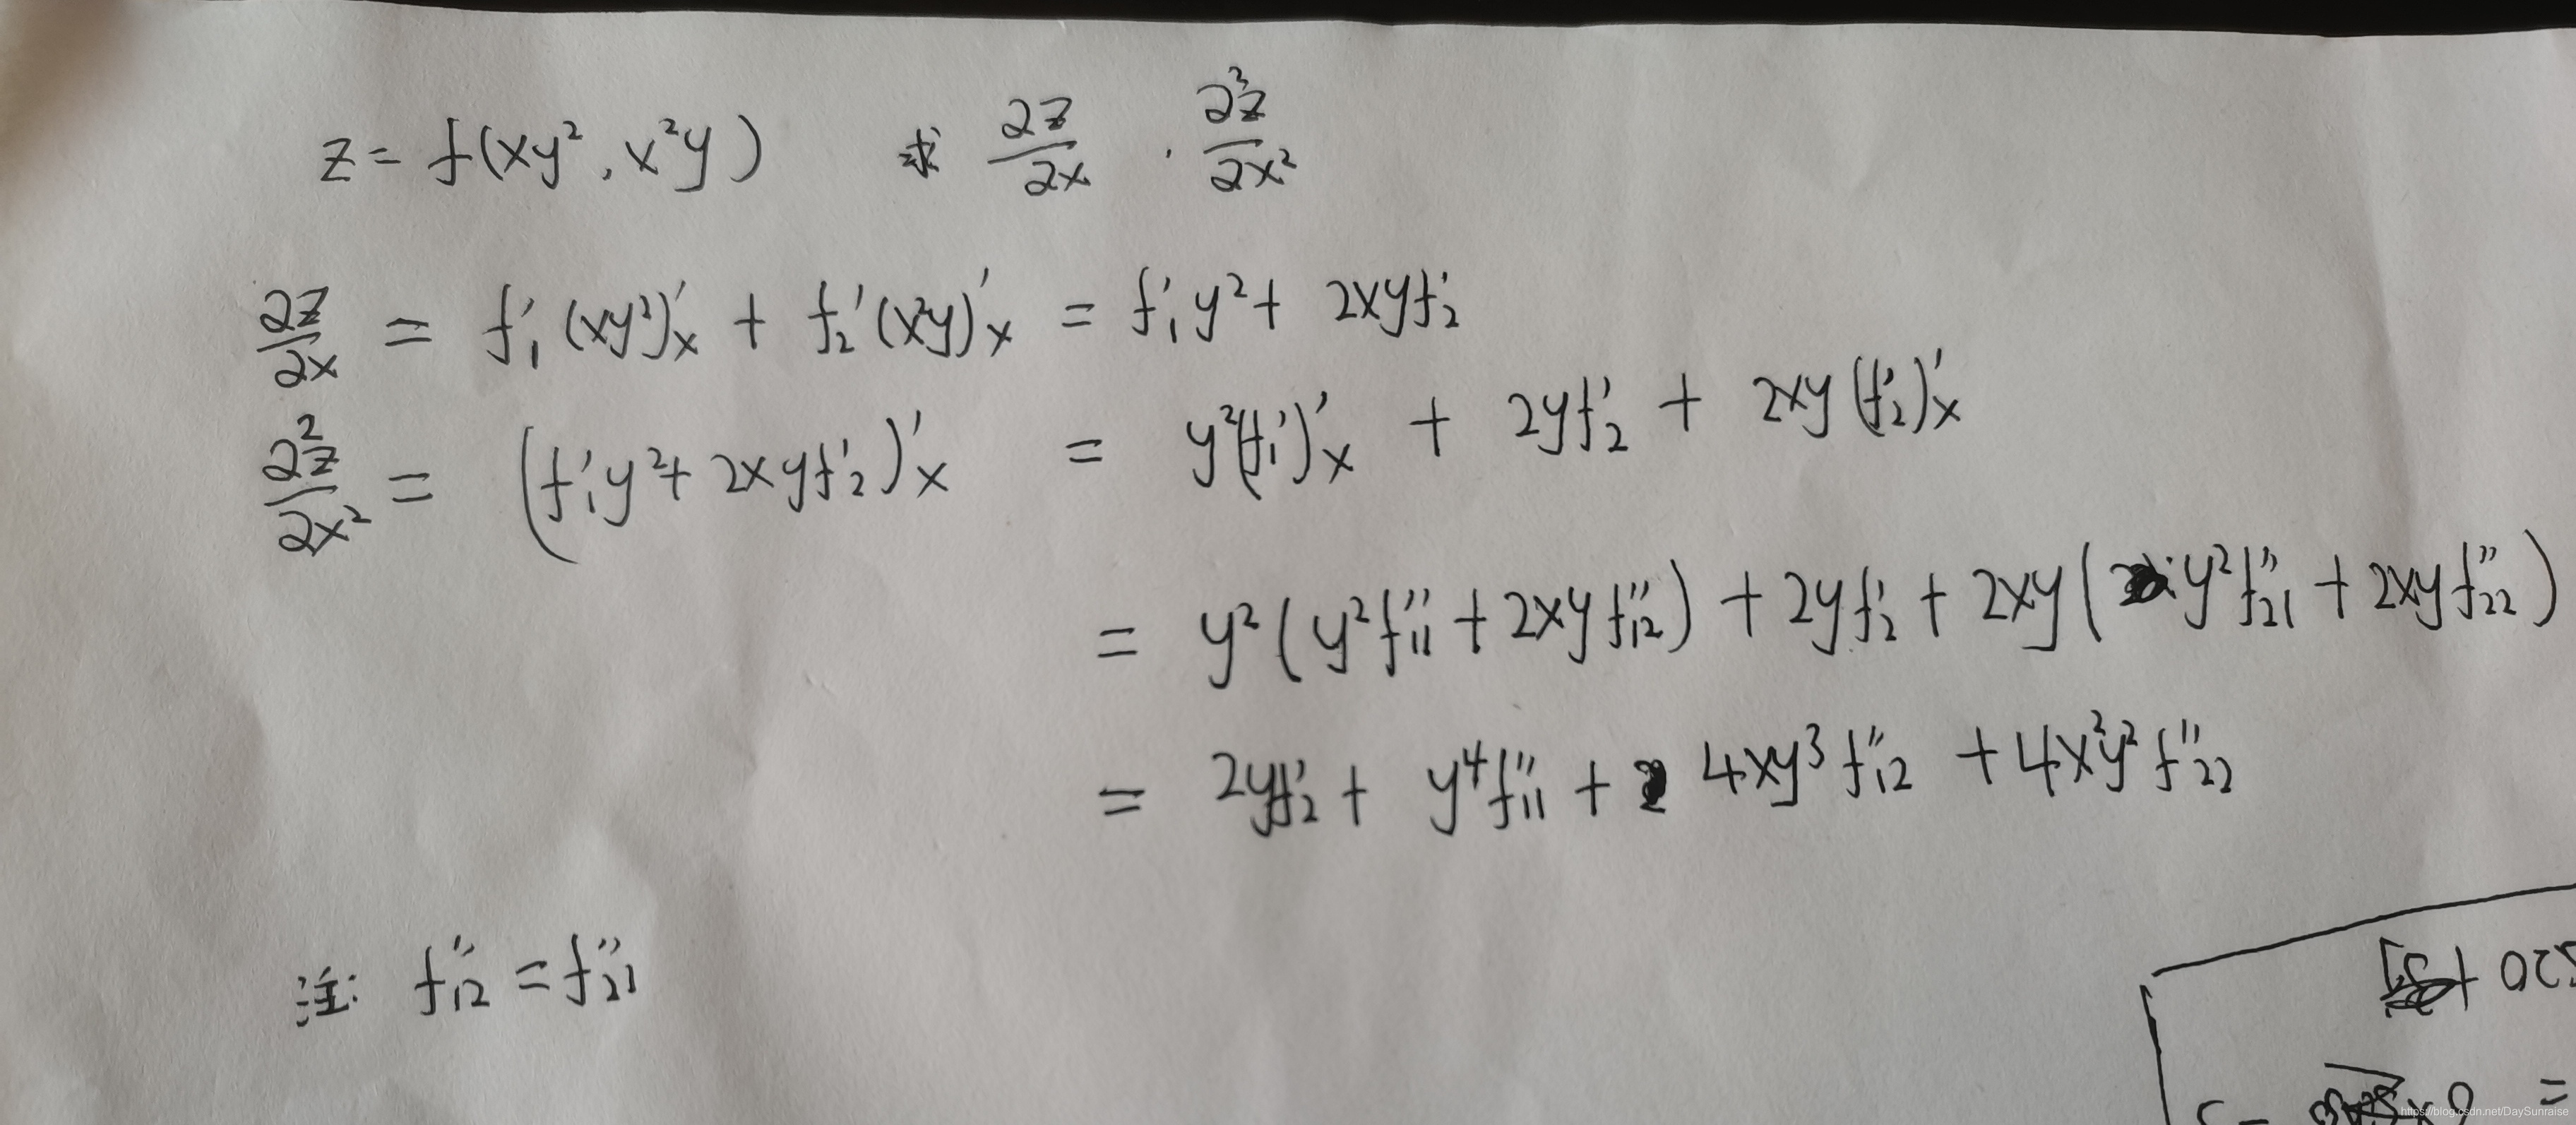 z = f(xy², x²y) 求 ∂z/∂x , ∂²z/∂x²
∂z/∂x = f₁′(xy²)′ₓ + f₂′(x²y)′ₓ = f₁′y² + 2xyf₂′
∂²z/∂x² = (f₁′y² + 2xyf₂′)′ₓ = y²(f₁′)′ₓ + 2yf₂′ + 2xy(f₂′)′ₓ
= y²(y²f₁₁″ + 2xyf₁₂″) + 2yf₂′ + 2xy(y²f₂₁″ + 2xyf₂₂″)
= 2yf₂′ + y⁴f₁₁″ + 4xy³f₁₂″ + 4x²y²f₂₂″
注: f₁₂″ = f₂₁″
https://blog.csdn.net/DaySunraise